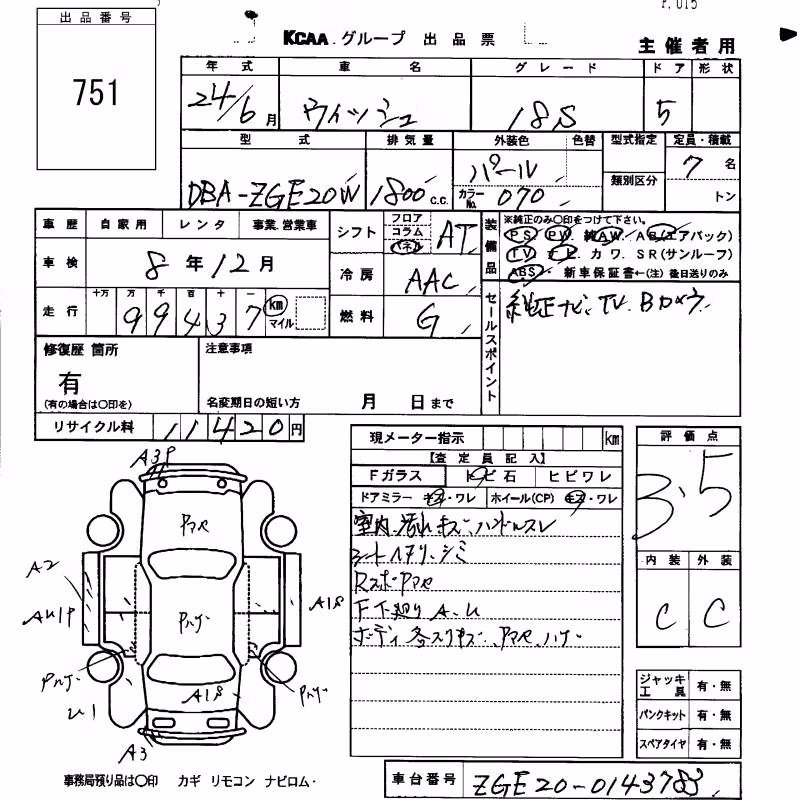 出品番号
751
KCAA グループ 出品票
主催者用
年式 車名 グレード ドア 形状
24/6月 ウィッシュ 18S 5
型式 排気量 外装色 色替 型式指定 定員・積載
DBA-ZGE20W 1800 c.c. パール 7名
カラーNo. 070 類別区分 トン
車歴 自家用 レンタ 事業.営業車
シフト フロア コラム パネル AT
装備品 ※純正のみ○印をつけて下さい。
PS PW 純AW. AB(エアバック)
TV ナビ. カワ. SR(サンルーフ)
ABS. 新車保証書←(注) 後日送りのみ
車検 8年12月
冷房 AAC
走行 十万 万 千 百 十 一
99437 km マイル
燃料 G
セールスポイント 純正ナビ. TV. Bカメラ.
修復歴 箇所
有
(有の場合は○印を)
注意事項
名変期日の短い方 月 日まで
リサイクル料 11420円
現メーター指示 km
【査定員記入】
Fガラス トビ石 ヒビワレ
ドアミラー キズ・ワレ ホイール(CP) キズ・ワレ
室内汚れキズ. ハンドルスレ
シートヘタリ. シミ
F下廻りA.U
評価点
3.5
内装 外装
C C
A39
A2
A18
A18
U1
A3
ジャッキ工具 有・無
パンクキット 有・無
スペアタイヤ 有・無
事務局預り品は○印 カギ リモコン ナビロム・
車台番号 ZGE20-0143783